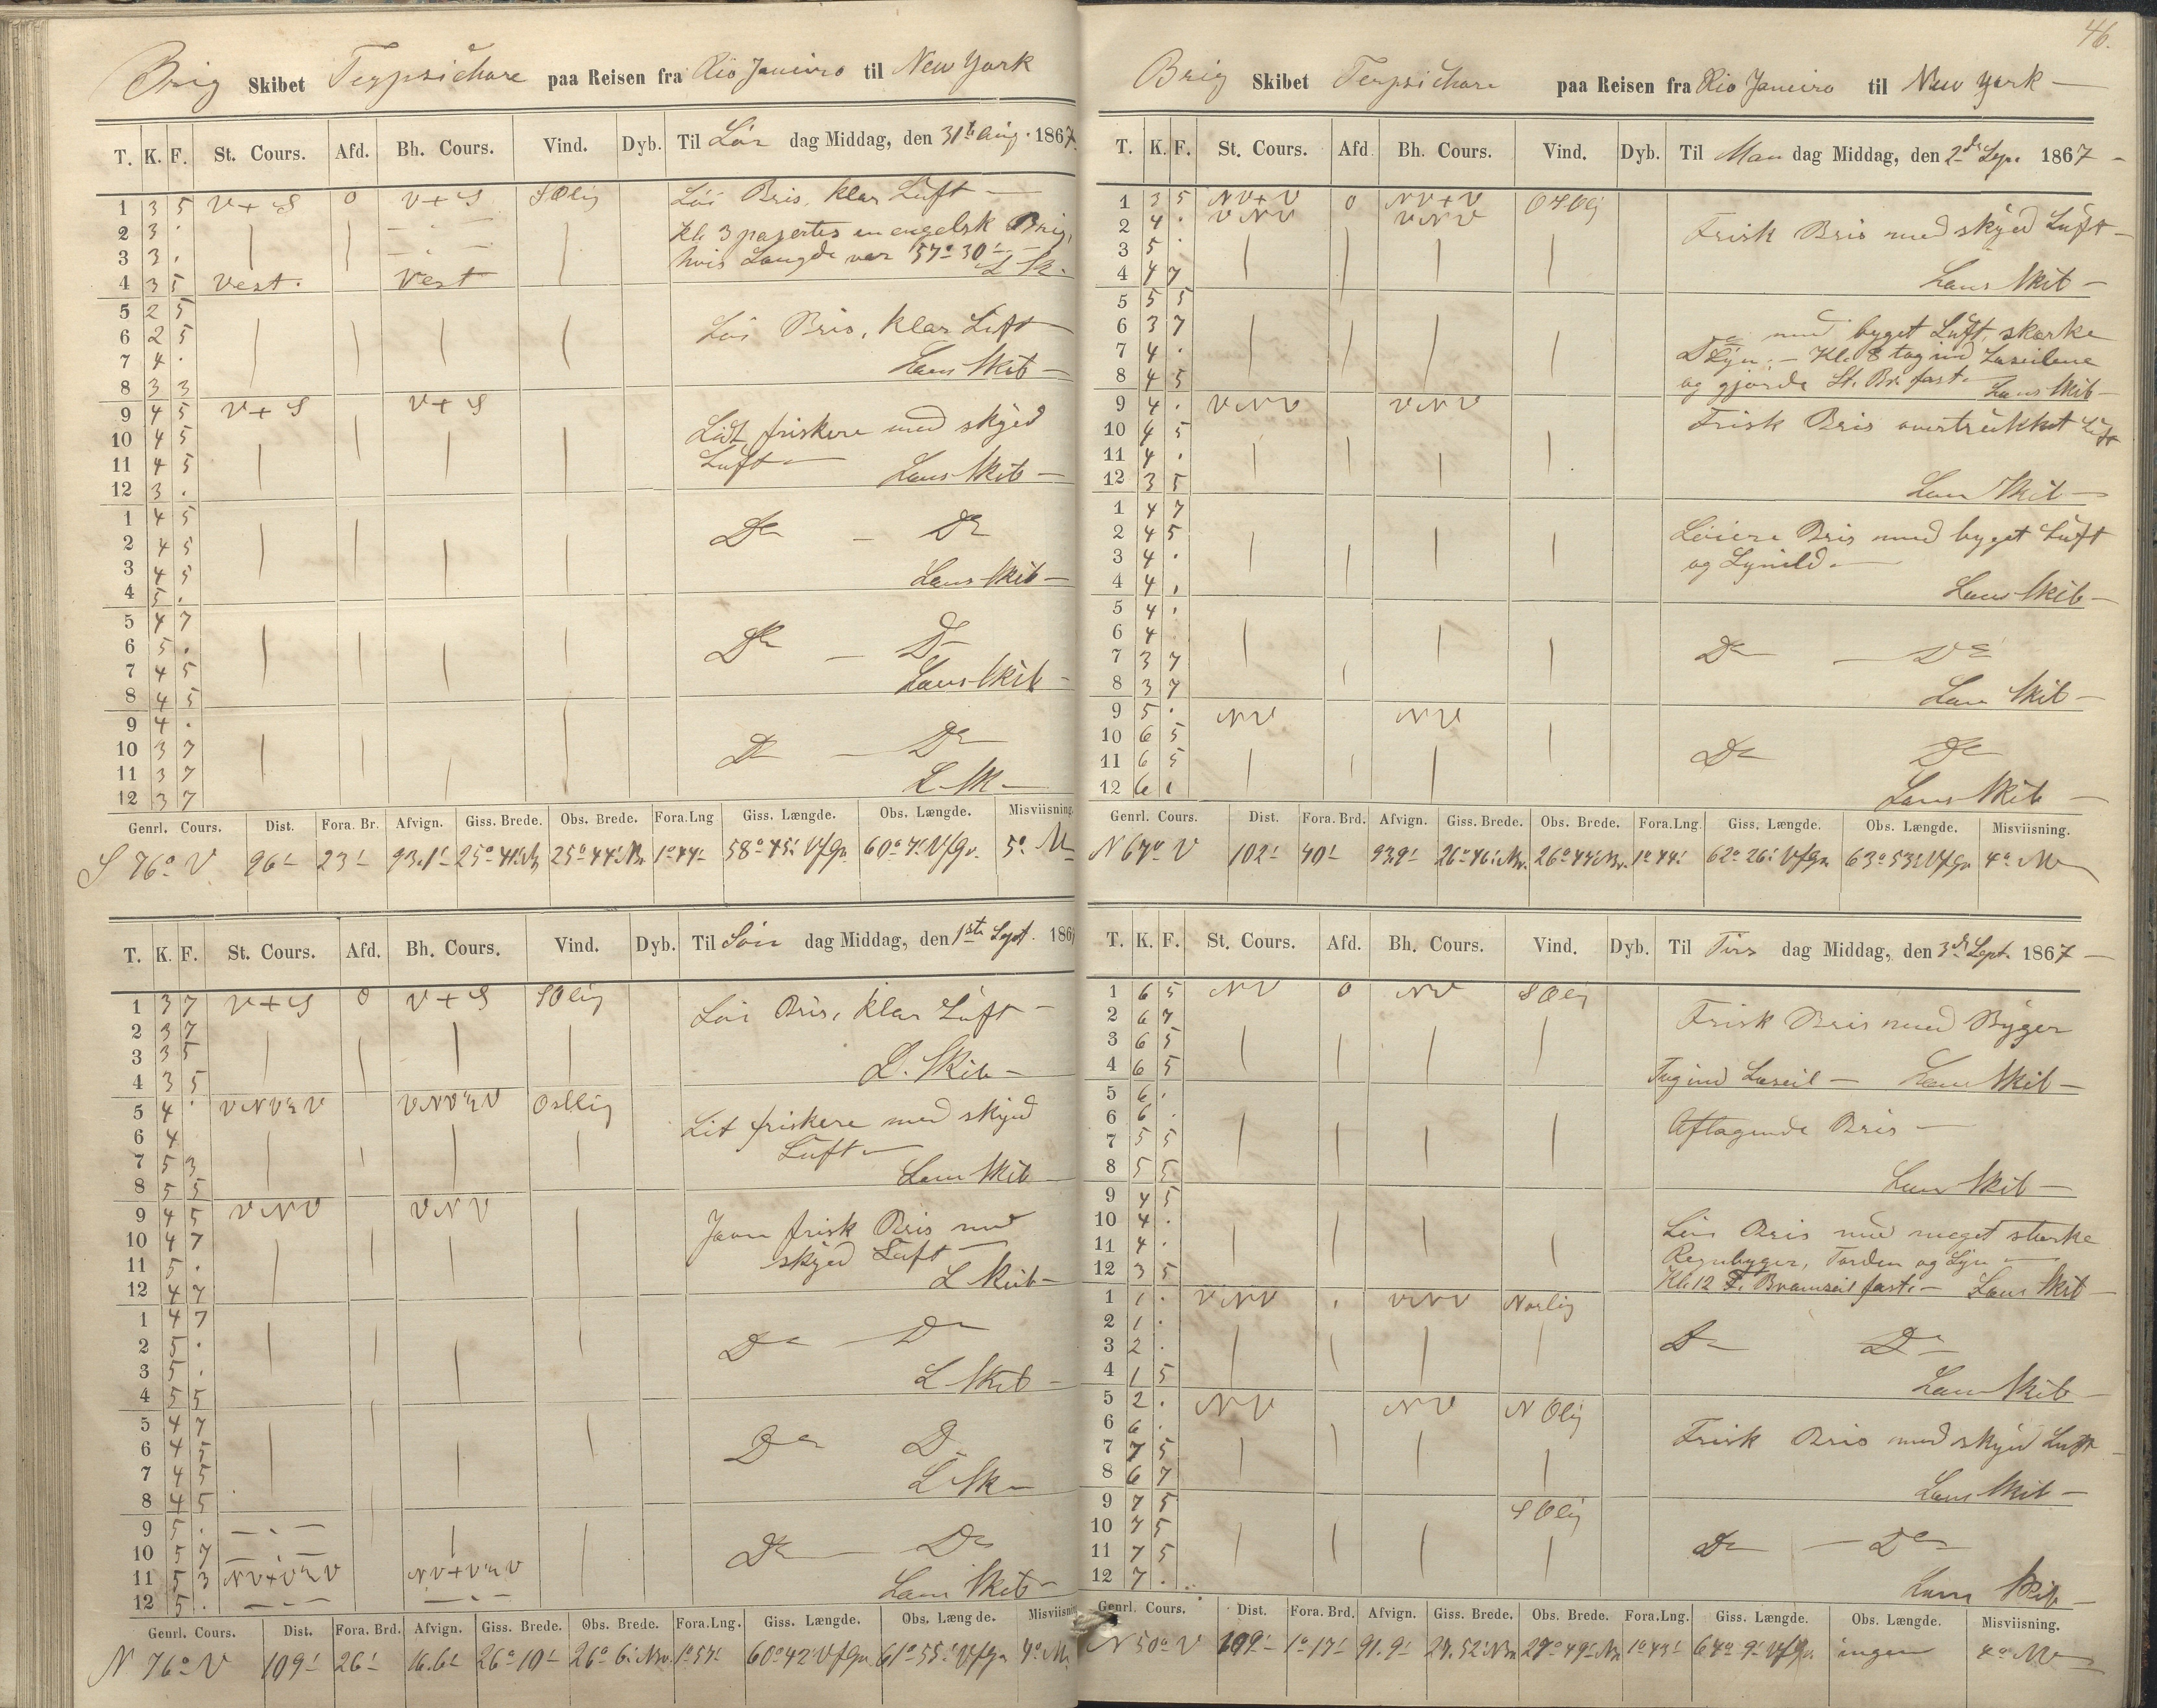 Brig Skibet Terpsichore paa Reisen fra Rio Janeiro til New York
T. K. F. St. Cours. Afd. Bh. Cours. Vind. Dyb. Til Lör dag Middag, den 31te Aug. 1867.
1 3 5 V+S 0 V+S SOlig Löi Bris, klar Luft —
2 3 . Kl. 3 passertes en engelsk Brig,
3 3 . hvis Længde var 57° 30' —
4 3 5 Vest. Vest L Sk.
5 2 5
6 2 5 Löi Bris, klar Luft
7 4 .
8 3 3 Laus Skib —
9 4 5 V+S V+S
10 4 5 Lidt friskere med skyed
11 4 5 Luft —
12 3 . Laus Skib —
1 4 5
2 4 5 Do — Do
3 4 5
4 5 . Laus Skib —
5 4 7
6 5 . Do — Do
7 4 5
8 4 5 Laus Skib —
9 4 .
10 3 7 Do — Do
11 3 7
12 3 7 L Sk —
Genrl. Cours. Dist. Fora. Br. Afvign. Giss. Brede. Obs. Brede. Fora.Lng Giss. Længde. Obs. Længde. Misviisning.
S 76° V 96' 23' 93.1' 25° 41' Br 25° 44' Br. 1° 44' 58° 45' Vfgr. 60° 7' Vfgr. 5°
T. K. F. St. Cours. Afd. Bh. Cours. Vind. Dyb. Til Sön dag Middag, den 1ste Sept. 1867
1 3 7 V+S 0 V+S SOlig Löi Bris, klar Luft —
2 3 7
3 3 5
4 3 5 L. Skib —
5 4 . VNV½V VNV½V Ostlig
6 4 Lit friskere med skyed
7 5 3 Luft —
8 5 5 Laus Skib
9 4 5 VNV VNV
10 4 7 Javn frisk Bris med
11 5 . skyed Luft —
12 4 7 L Skib —
1 4 7
2 5 . Do — Do
3 5 .
4 5 5 L Skib —
5 4 7
6 4 5 Do Do
7 4 5
8 4 5 L Sk —
9 5 . — . —
10 5 7 — . — Do — Do
11 5 3 NV+V½V NV+V½V
12 5 . — . — — . — Laus Skib —
Genrl. Cours. Dist. Fora. Brd. Afvign. Giss. Brede. Obs. Brede. Fora.Lng. Giss. Længde. Obs. Læng de. Misviisning
N 76° V 109' 26' 26° 10' 26° 6' Br. 1° 57' 60° 42' Vfgr. 61° 55' Vfgr. 4°
46.
Brig Skibet Terpsichore paa Reisen fra Rio Janeiro til New York —
T. K. F. St. Cours. Afd Bh. Cours. Vind. Dyb. Til Man dag Middag, den 2de Sep. 1867 —
1 3 5 NV+V 0 NV+V
2 4 . VNV VNV Frisk Bris med skyed Luft —
3 5 .
4 4 7 Laus Skib —
5 5 5
6 3 7 Do med byget Luft, stærke
7 4 . Lyn. — Kl. 8 tog ind Læseilene
8 4 5 og gjorde St. Br. fast — Laus Skib —
9 4 . VNV VNV Frisk Bris overtrukket Luft
10 4 5
11 4 .
12 3 5 Laus Skib —
1 4 7
2 4 5 Löiere Bris med byget Luft
3 4 . og Lynild. —
4 4 . Laus Skib —
5 4 .
6 4
7 3 7 Do — Do
8 3 7 Laus Skib —
9 5 . NV NV
10 6 5
11 6 5 Do Do
12 6 1 Laus Skib —
Genrl. Cours. Dist. Fora. Brd. Afvign. Giss. Brede. Obs. Brede. Fora.Lng. Giss. Længde. Obs. Længde. Misviisning.
N 67° V 102' 40' 93.9' 26° 46' Br. 26° 44' Br. 1° 44' 62° 26' Vfgr. 63° 53' Vfgr. 4°
T. K. F. St. Cours. Afd. Bh. Cours. Vind. Dyb. Til Tirs dag Middag, den 3de Sept. 1867 —
1 6 5 NV 0 NV SOlig
2 6 7 Frisk Bris med Byger
3 6 5
4 6 5 Tog ind Læseil — Laus Skib —
5 6 .
6 6 . Aftagende Bris —
7 5 5
8 5 5 Laus Skib —
9 4 5
10 4 . Löi Bris med meget stærke
11 4 . Regnbyger, Torden og Lyn —
12 3 5 Kl. 12 F. Bramseil fast. — Laus Skib —
1 1 . VNV . VNV Norlig
2 1 .
3 2 . Do Do
4 1 5 Laus Skib —
5 2 . NV NV NOlig
6 6 . Frisk Bris med skyed Luft —
7 7 5
8 6 7 Laus Skib —
9 7 5 SOlig
10 7 5
11 7 5 Do — Do
12 7 . Laus Skib —
Genrl. Cours. Dist. Fora. Brd. Afvign. Giss. Brede. Obs. Brede. Fora.Lng. Giss. Længde. Obs. Længde. Misviisning.
N 50° V 109' 1° 17' 91.9' 27.52' Br 27° 49' Br 1° 43' 64° 9' Vfgr. ingen 4°